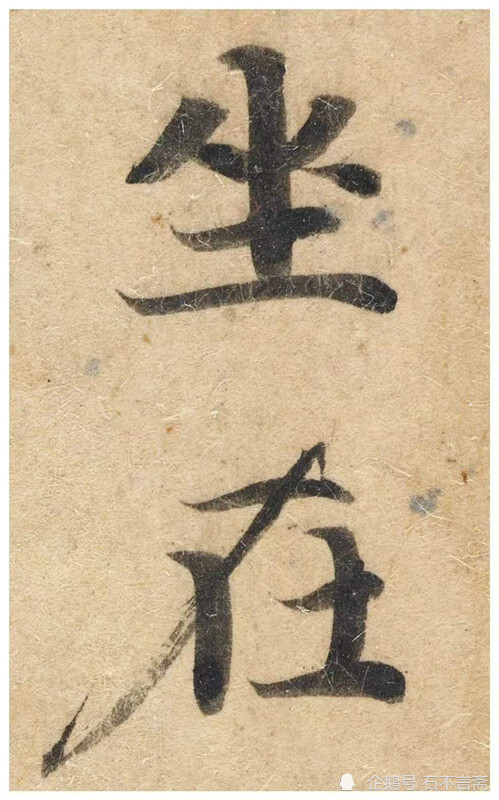 坐
在
企鹅号 石不言斋